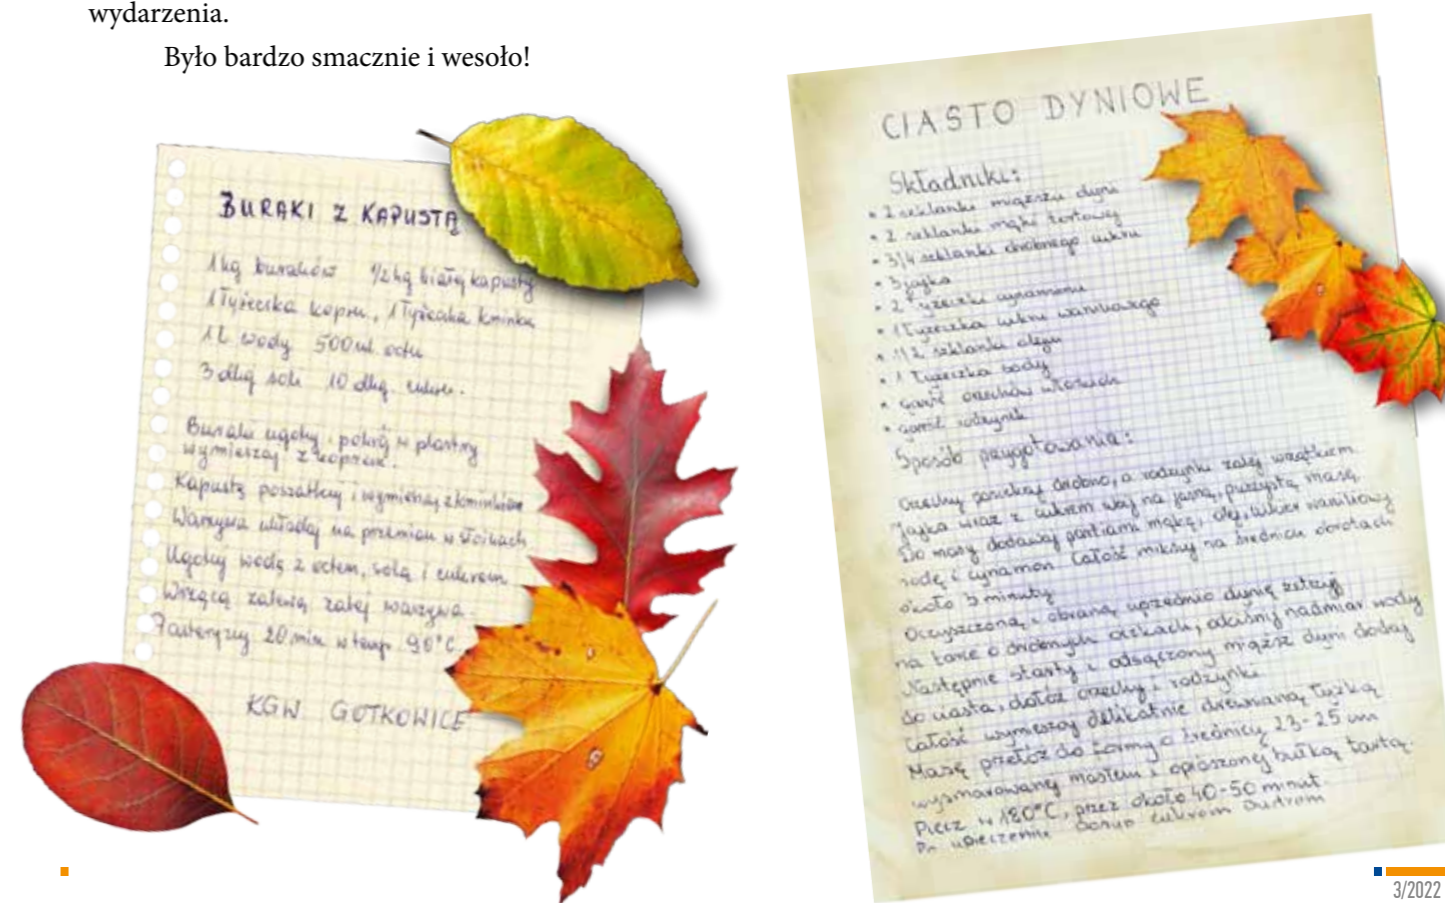 wydarzenia.
Było bardzo smacznie i wesoło!
BURAKI Z KAPUSTĄ
1 kg buraków 1/2 kg białej kapusty
1 łyżeczka kopru, 1 łyżeczka kminku
1 L wody 500 ml octu
3 dkg soli 10 dkg. cukru.
Buraki ugotuj i pokrój w plastry
wymieszaj z koprem.
Kapustę poszatkuj i wymieszaj z kminkiem
Warzywa układaj na przemian w słoikach
Ugotuj wodę z octem, solą i cukrem
Wrzącą zalewą zalej warzywa.
Pasteryzuj 20 min w temp. 90°C
KGW GOTKOWICE
CIASTO DYNIOWE
Składniki:
• 2 szklanki miąższu dyni
• 2 szklanki mąki tortowej
• 3/4 szklanki drobnego cukru
• 3 jajka
• 2 łyżeczki cynamonu
• 1 łyżeczka cukru waniliowego
• 1/2 szklanki oleju
• 1 łyżeczka sody
• garść orzechów włoskich
• garść rodzynek
Sposób przygotowania:
Orzechy posiekaj drobno, a rodzynki zalej wrzątkiem.
Jajka wraz z cukrem ubij na jasną, puszystą masę.
Do masy dodawaj partiami mąkę, olej, cukier waniliowy
sodę i cynamon. Całość miksuj na średnich obrotach
około 3 minuty
Oczyszczoną i obraną uprzednio dynię zetrzyj
na tarce o drobnych oczkach, odciśnij nadmiar wody
Następnie starty i odsączony miąższ dyni dodaj
do ciasta, dołóż orzechy i rodzynki.
Całość wymieszaj delikatnie drewnianą łyżką
Masę przełóż do formy o średnicy 23-25 cm
wysmarowanej masłem i oprószonej bułką tartą.
Piecz w 180°C, przez około 40-50 minut
Po upieczeniu cukrem pudrem
3/2022